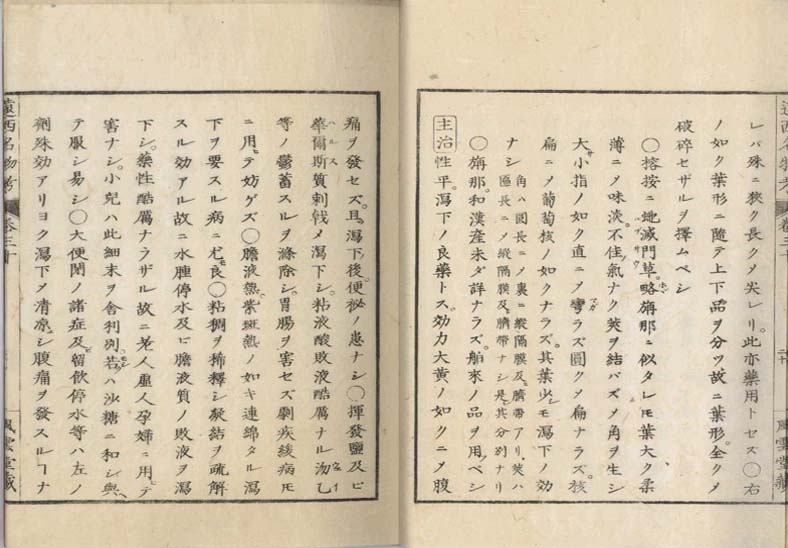 レバ殊ニ狹ク長クメ尖レリ。此亦藥用トセズ〇右
ノ如ク葉形ニ隨テ上下品ヲ分ツ故ニ葉形全クメ
破碎セザルヲ擇ムベシ
〇榕按ニ地滅門草。略旃那ニ似タレ𪜈葉大ク柔
薄ニメ味淡。不佳氣ナク莢ヲ結バズメ角ヲ生シ
大サ小指ノ如ク直ニメ彎ラズ圓クメ扁ナラズ。核
扁ニメ葡萄核ノ如クナラズ。其葉少シモ瀉下ノ効
ナシ 角ハ圓長ニメ裏ニ縱隔膜及ビ臍帶アリ。莢ハ
匾長ニメ縱隔膜及ビ臍帶ナシ是其分別ナリ
〇旃那。和漢産未ダ詳ナラズ。舶來ノ品ヲ用ベシ
主治 性平。瀉下ノ良藥トズ。効力大黄ノ如クニメ腹
遠西名物考 卷三十 風雲堂藏
痛ヲ發セズ。且瀉下後。便祕ノ患ナシ〇揮發鹽及ビ
華爾斯質刺戟メ瀉下シ。粘液酸敗液酷厲ナル
等ノ鬱蓄スルヲ滌除シ。胃腸ヲ害セズ。劇疾緩病𪜈
ニ用テ妨ゲズ〇膽液熱紫斑熱ノ如キ連綿タル瀉
下ヲ要スル病ニ尤モ良〇粘稠ヲ稀釋シ凝結ヲ疏解
スル効アル故ニ水腫停水及ビ膽液質ノ敗液ヲ瀉
下シ。藥性酷厲ナラザル故ニ老人虛人孕婦ニ用テ
害ナシ。小兒ハ此細末ヲ舎利別。若ハ沙糖ニ和シ與
テ服シ易シ〇大便閉ノ諸症及ビ留飲停水等ハ左ノ
劑殊効アリヨク瀉下メ清凉シ腹痛ヲ發スルヿナ
遠西名物考 卷三十 風雲堂藏